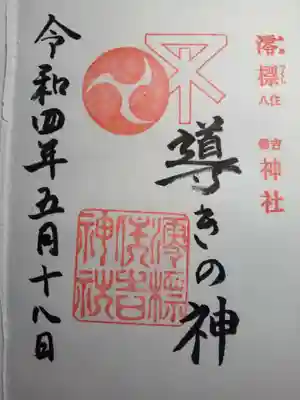 澪標住吉神社
導きの神
澪標
住吉
神社
令和四年五月十八日